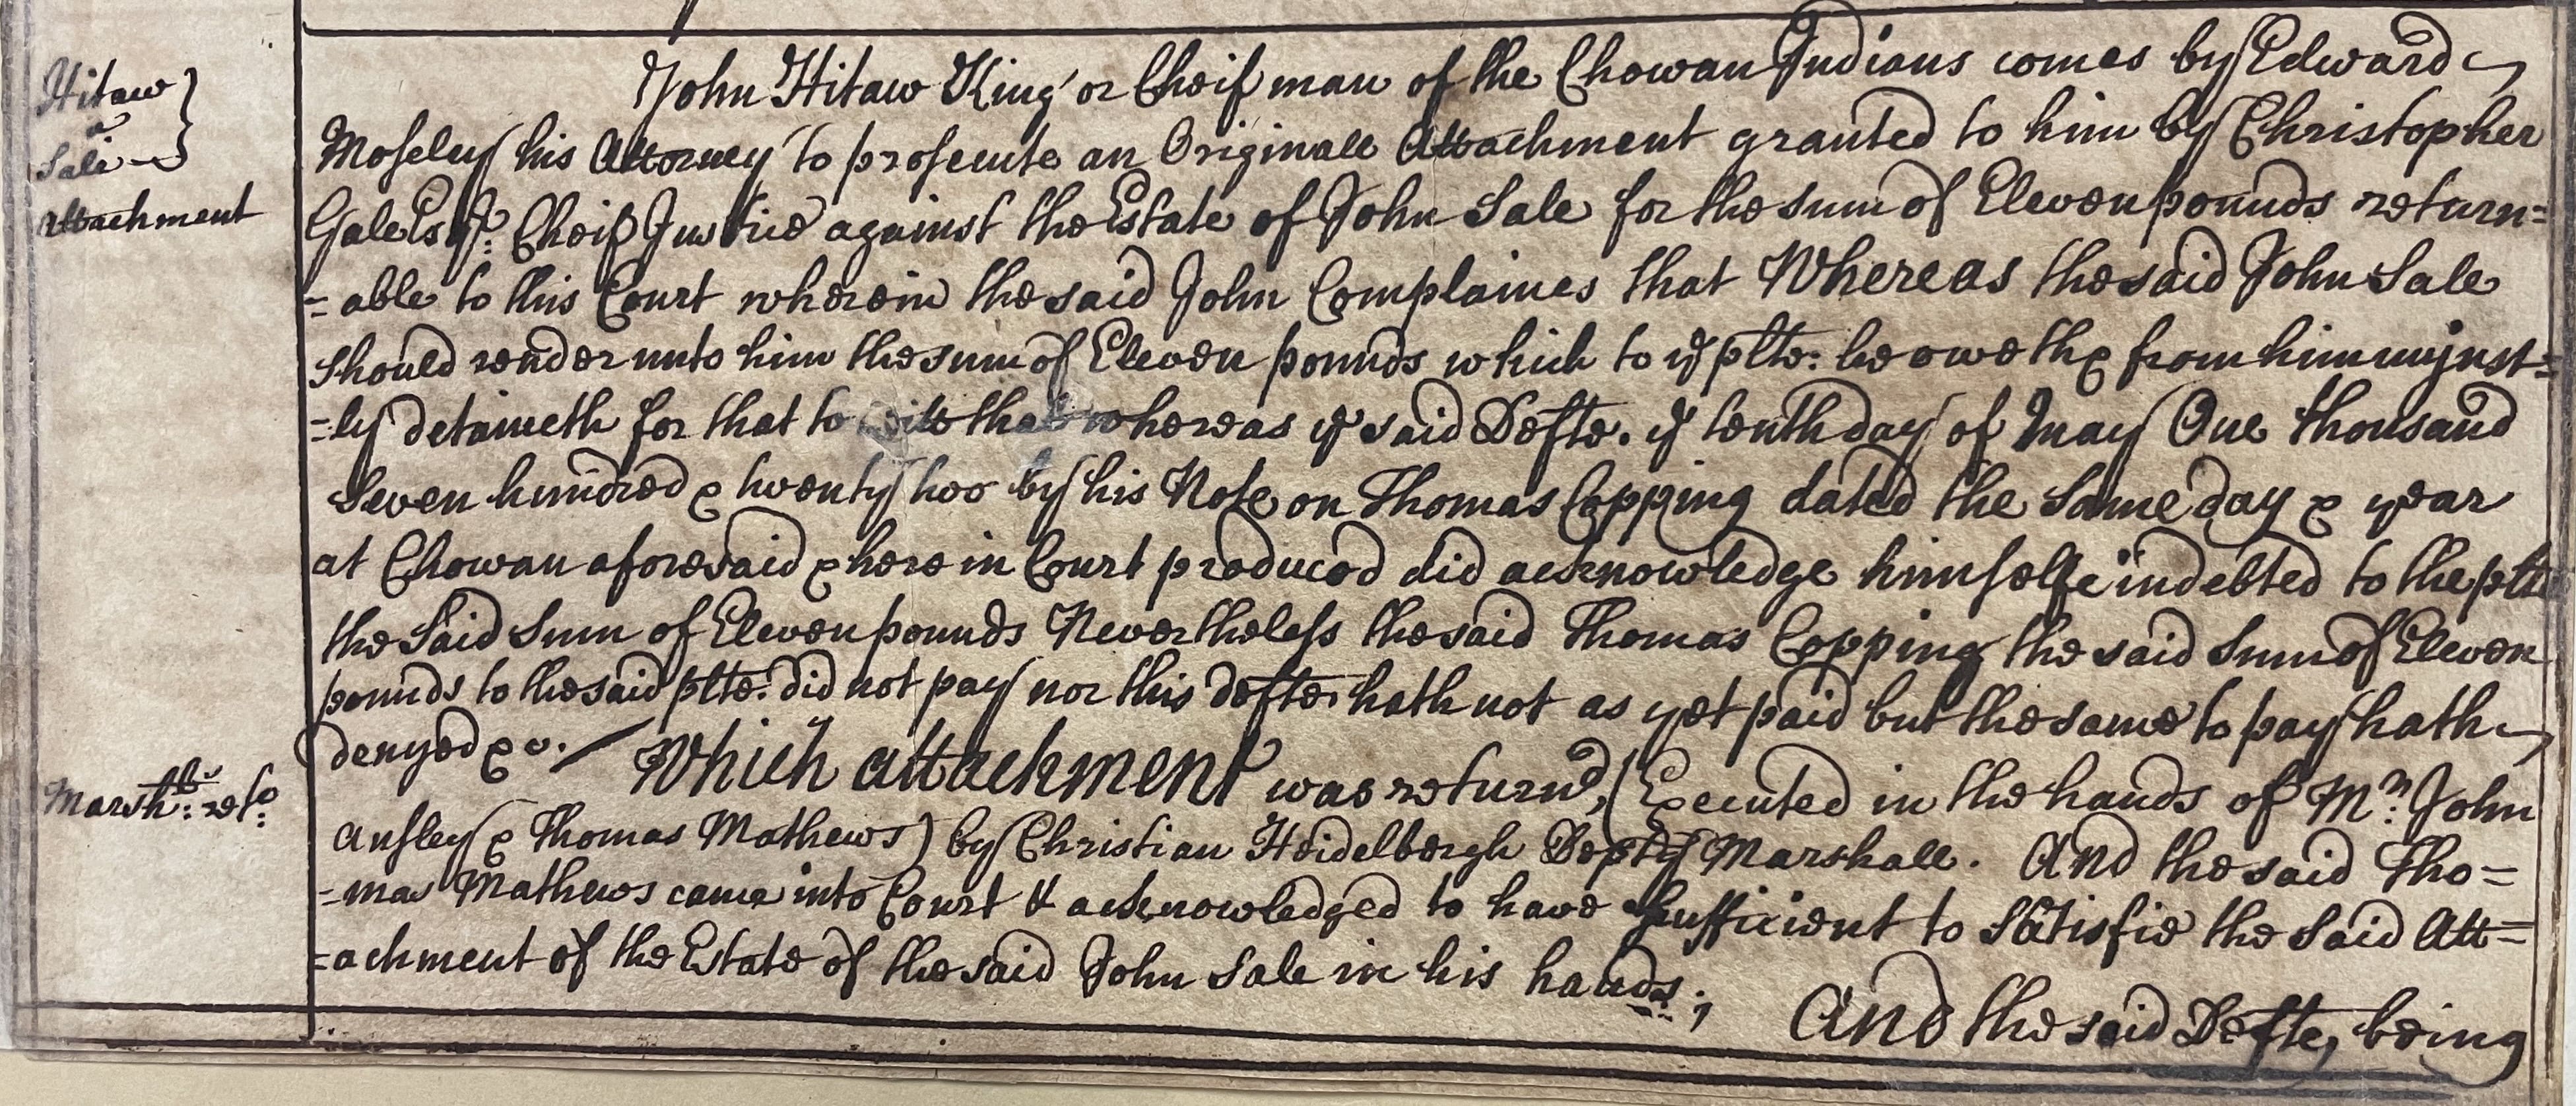 Hitaw
a
Sale
Attachment
John Hitaw King or Cheif man of the Chowan Indians comes by Edward
Moseley his Attorney to prosecute an Originall Attachment granted to him by Christopher
Gale Esqr. Cheif Justice against the Estate of John Sale for the sum of Eleven pounds return=
=able to this Court wherein the said John Complaines that Whereas the said John Sale
should render unto him the sum of Eleven pounds which to ye plte: he oweth & from him unjust=
=ly detaineth for that to witt that whereas ye said Defte. ye tenth day of May One thousand
Seven hundred & twenty two by his Note on Thomas Copping dated the same day & year
at Chowan aforesaid & here in Court produced did acknowledge himselfe indebted to the plte
the said Sum of Eleven pounds Nevertheless the said Thomas Copping the said Sum of Eleven
pounds to the said plte. did not pay nor this defte. hath not as yet paid but the same to pay hath
denyed &c. Which attachment was return'd, (Executed in the hands of Mr. John
Marshls: reto:
Ansley & Thomas Mathews) by Christian Heidelbergh Depty Marshall. And the said Tho=
=mas Mathews came into Court & acknowledged to have sufficient to Satisfie the said Att=
=achment of the Estate of the said John Sale in his hands;
And the said Defte, being